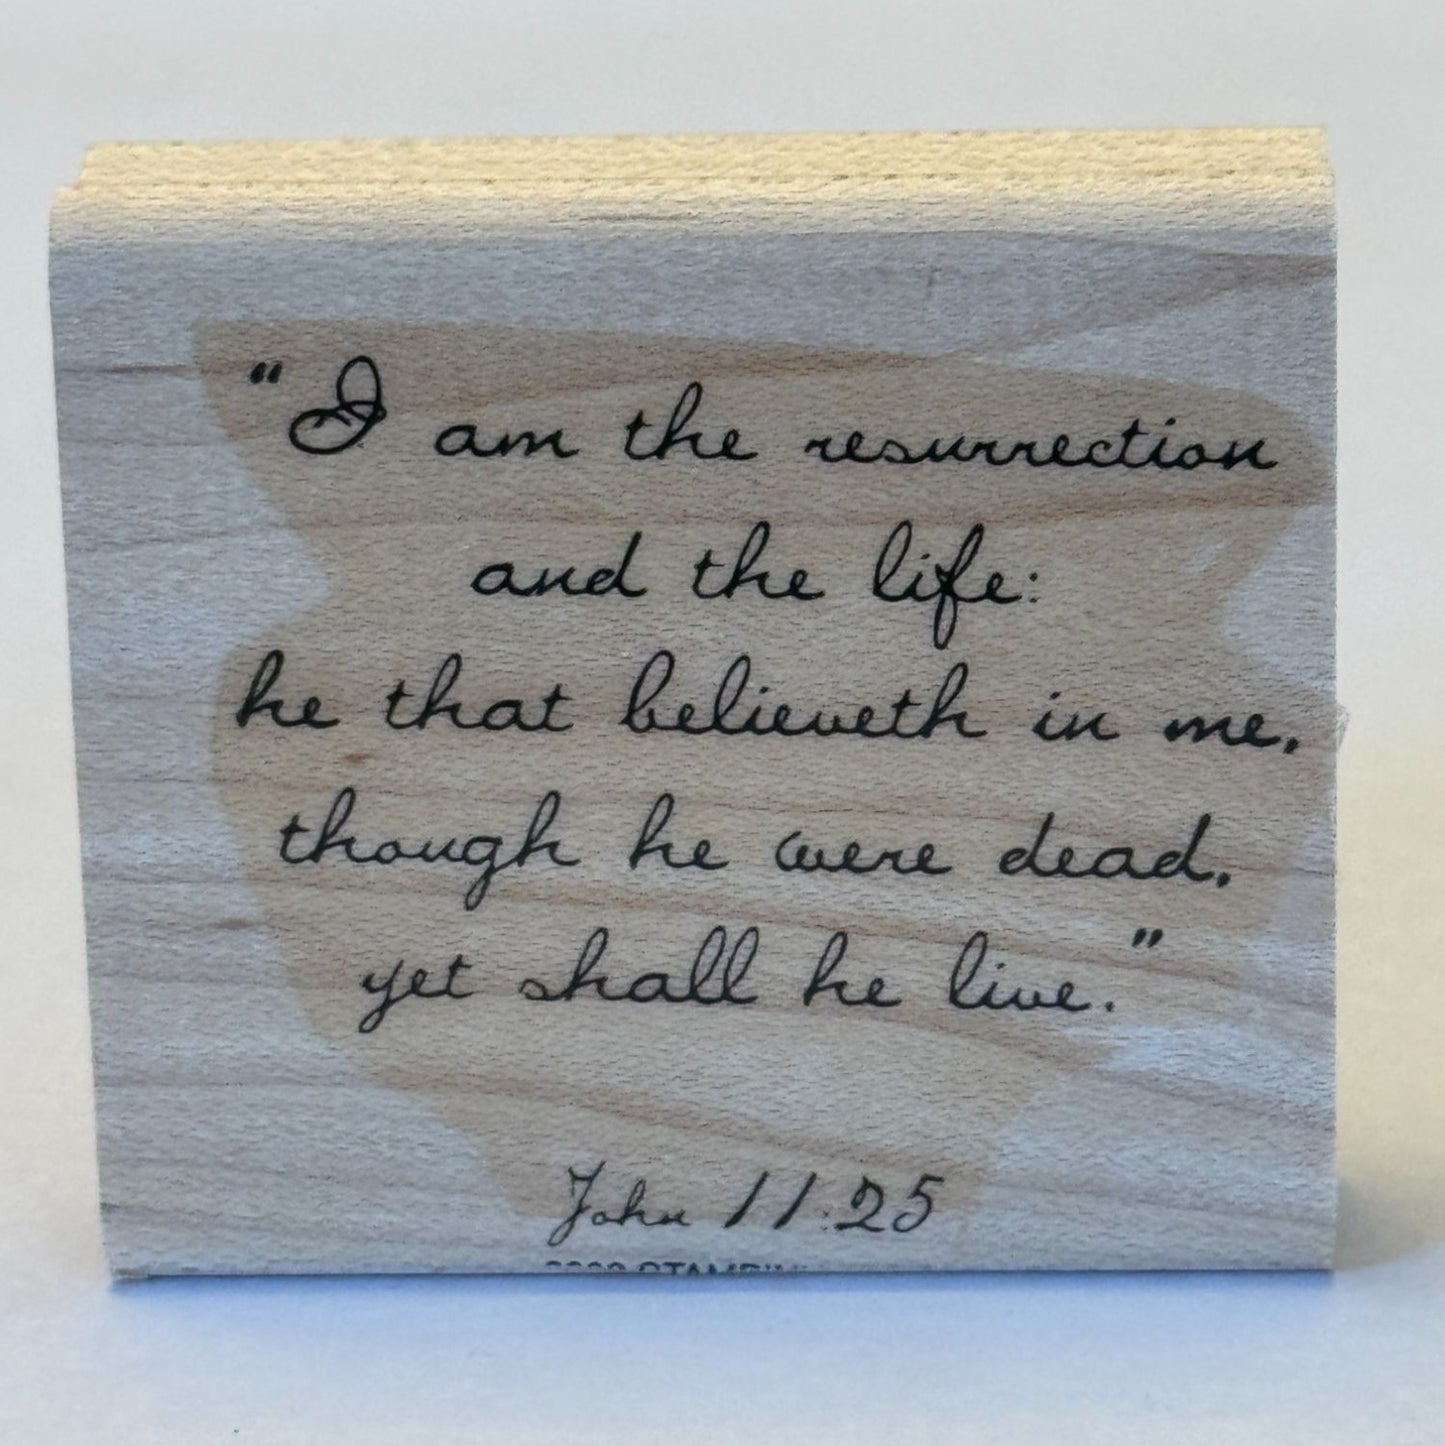 "I am the resurrection
and the life:
he that believeth in me,
though he were dead,
yet shall he live."
John 11:25